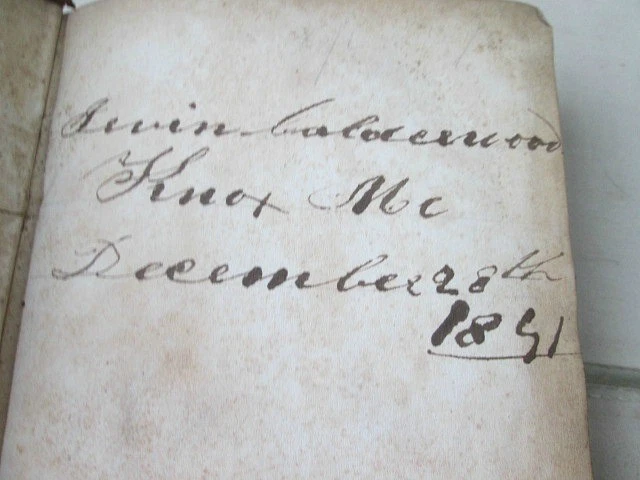 Irvin Calderwood
Knox Me
December 28th
1891